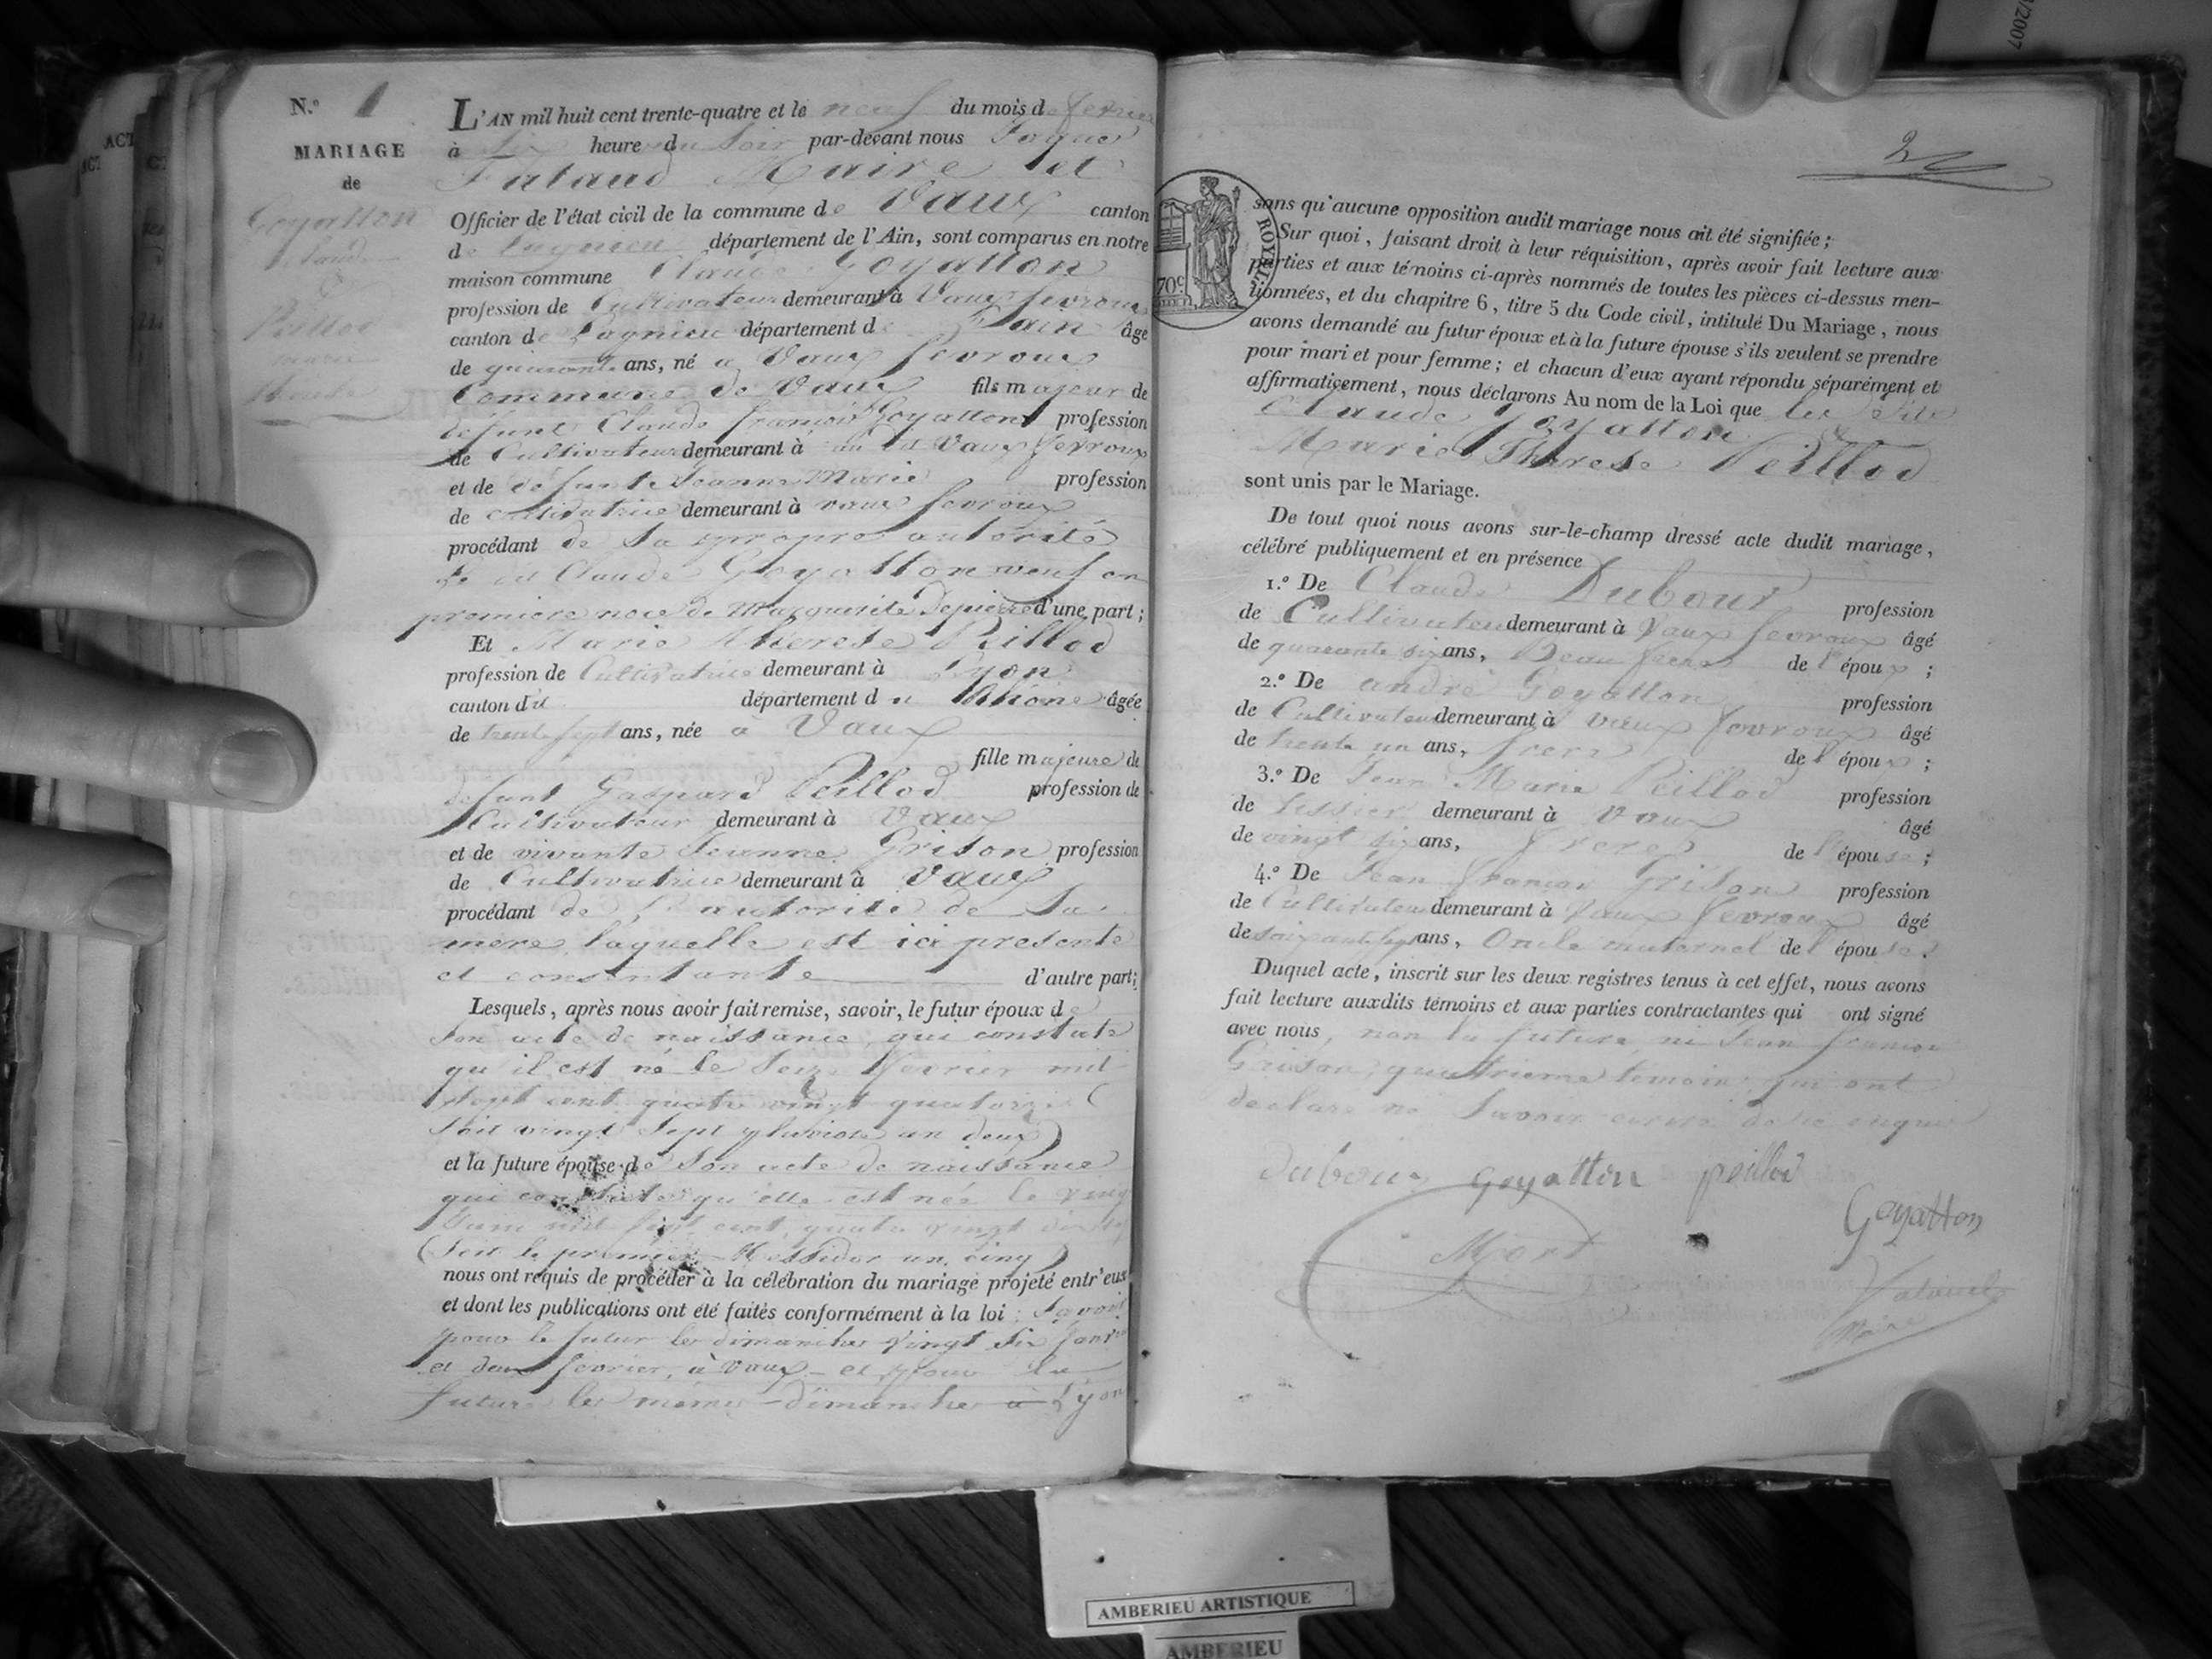 N.º 1
MARIAGE
de
Goyatton
Claude
&
Peillod
marie
therese
L'AN mil huit cent trente-quatre et le neuf du mois de fevrier
à six heure du soir par-devant nous
Maire et
Officier de l'état civil de la commune de Vaux canton
de Lagnieu département de l'Ain, sont comparus en notre
maison commune Claude Goyatton
profession de Cultivateur demeurant à Vaux fevroux
canton de Lagnieu département de l'ain âgé
de quarante ans, né a Vaux fevroux
Commune de Vaux fils majeur de
défunt Claude françois Goyatton profession
de Cultivateur demeurant à au dit Vaux fevroux
et de défunte Jeanne Marie profession
de cultivatrice demeurant à vaux fevroux
procédant de sa propre autorité
Le dit Claude Goyatton veuf en
premiere noce de Marguerite Depierre d'une part ;
Et Marie therese Peillod
profession de Cultivatrice demeurant à Lyon
canton dit département du Rhône âgée
de trente sept ans, née à Vaux
fille majeure de
defunt Gaspard Peillod profession de
Cultivateur demeurant à Vaux
et de vivante Jeanne Grison profession
de Cultivatrice demeurant à Vaux
procédant de l'autorité de Sa
mere laquelle est ici presente
et consentante d'autre part ;
Lesquels, après nous avoir fait remise, savoir, le futur époux de
son acte de naissance qui constate
qu'il est né le Seize fevrier mil
sept cent quatre vingt quatorze (
soit vingt sept pluviose an deux)
et la future épouse de son acte de naissance
qui constate qu'elle est née le
juin mil sept cent quatre vingt dix sept
(soit le premier Messidor an cinq)
nous ont requis de procéder à la célébration du mariage projeté entr'eux
et dont les publications ont été faites conformément à la loi ; Savoir
pour le futur les dimanches vingt six janvier
et deux fevrier, à vaux - et pour la
future les mêmes dimanches à Lyon
2
ROYAL
70c
sans qu'aucune opposition audit mariage nous ait été signifiée ;
Sur quoi, faisant droit à leur réquisition, après avoir fait lecture aux
parties et aux témoins ci-après nommés de toutes les pièces ci-dessus men-
tionnées, et du chapitre 6, titre 5 du Code civil, intitulé Du Mariage, nous
avons demandé au futur époux et à la future épouse s'ils veulent se prendre
pour mari et pour femme ; et chacun d'eux ayant répondu séparément et
affirmativement, nous déclarons Au nom de la Loi que les dits
Claude Goyatton &
Marie Therese Peillod
sont unis par le Mariage.
De tout quoi nous avons sur-le-champ dressé acte dudit mariage,
célébré publiquement et en présence
1.º De Claude Dubour profession
de Cultivateur demeurant à Vaux fevroux âgé
de quarante six ans, Beau frere de l'époux ;
2.º De andré Goyatton profession
de Cultivateur demeurant à vaux fevroux âgé
de trente un ans, frere de l'époux ;
3.º De Jean Marie Peillod profession
de tissier demeurant à Vaux âgé
de vingt six ans, frere de l'épouse ;
4.º De Jean françois Grison profession
de Cultivateur demeurant à Vaux fevroux âgé
de soixante sept ans, Oncle maternel de l'épouse.
Duquel acte, inscrit sur les deux registres tenus à cet effet, nous avons
fait lecture auxdits témoins et aux parties contractantes qui ont signé
avec nous, non la future, ni Jean françois
Grison, quatrieme temoin qui ont
declaré ne Savoir ecrire de ce enquis
Dubour goyatton peillod
Goyatton
Maire
AMBERIEU ARTISTIQUE
AMBERIEU
/2007
ACT
ACT